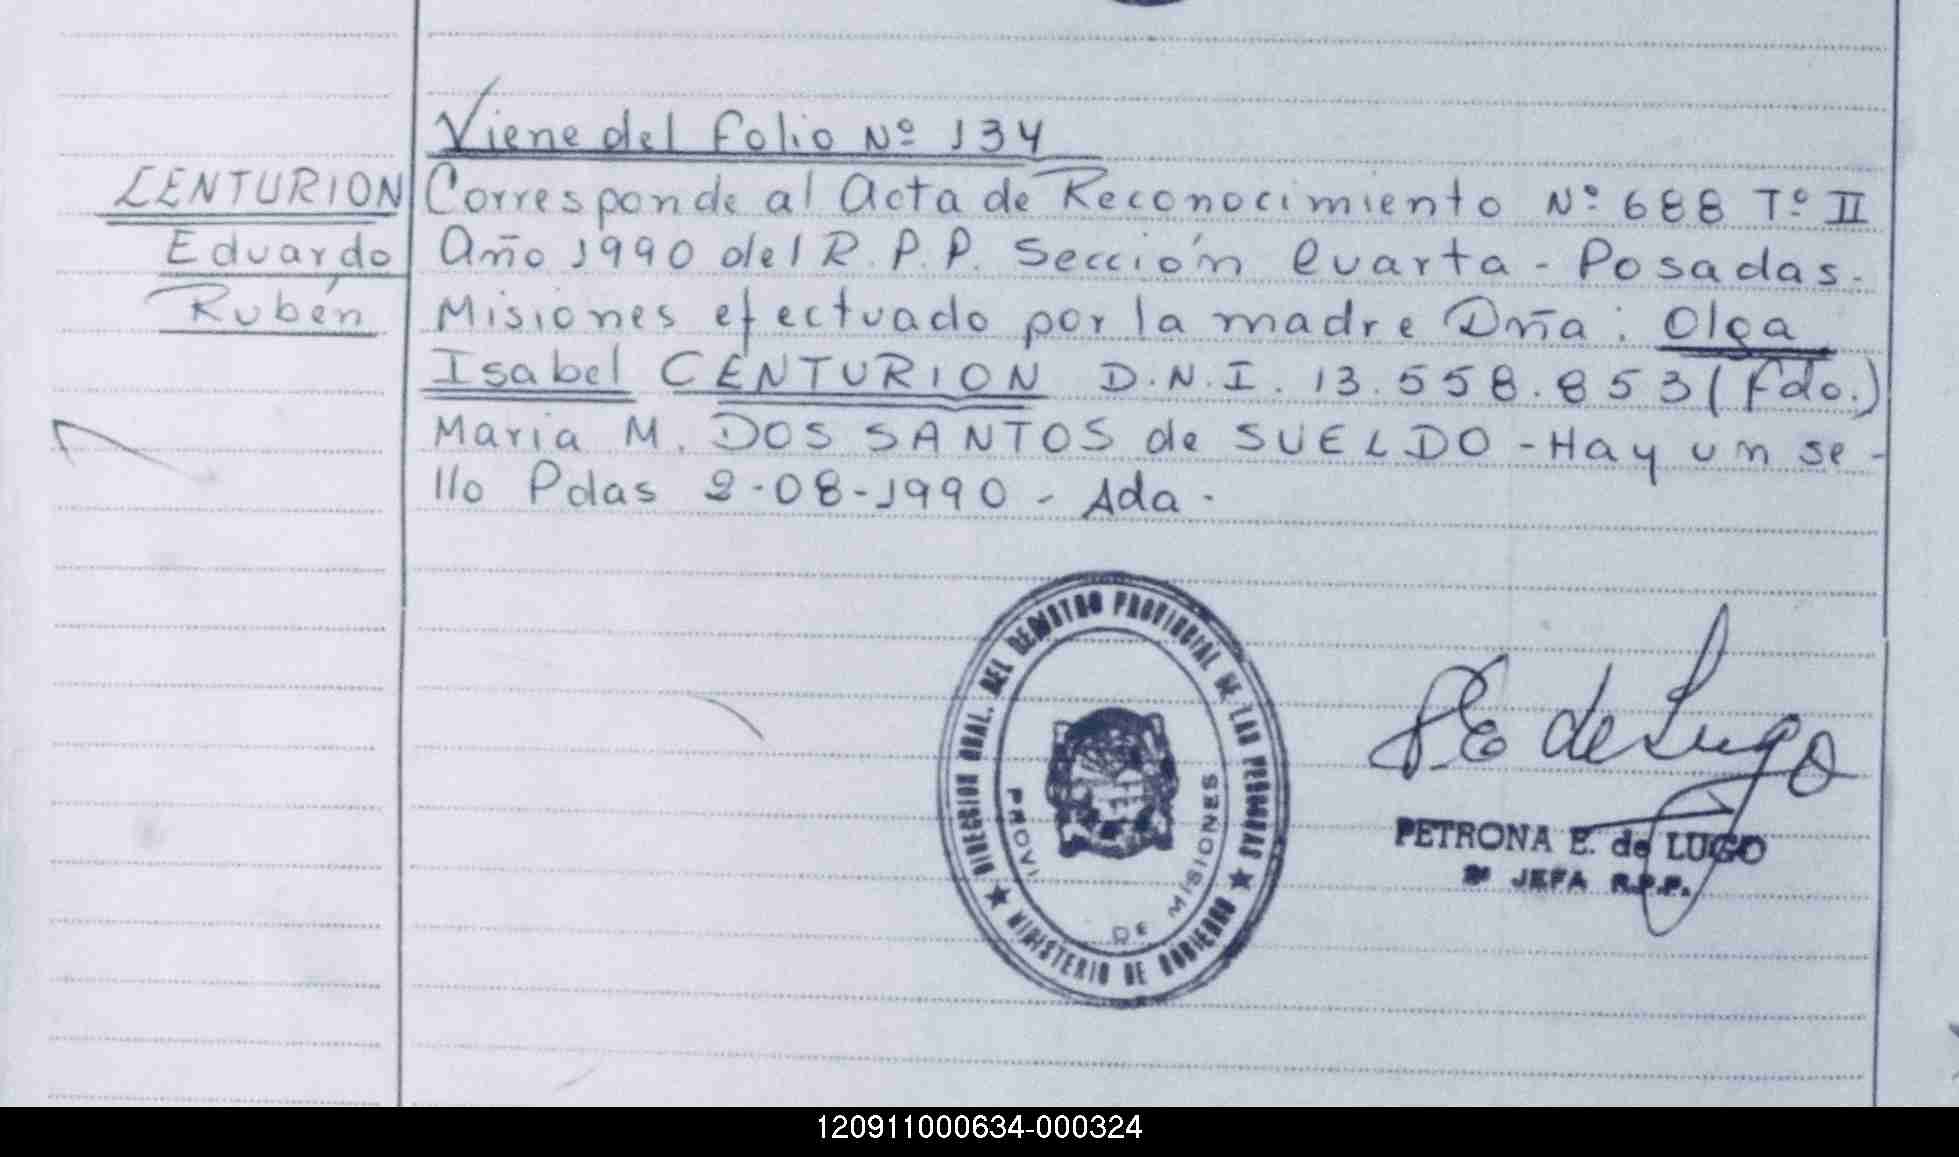 Viene del folio Nº 134
CENTURION
Eduardo
Rubén
Corresponde al Acta de Reconocimiento Nº 688 Tº II
Año 1990 del R.P.P. Sección Cuarta - Posadas -
Misiones efectuado por la madre Dña: Olga
Isabel CENTURION D.N.I. 13.558.853 (Fdo.)
Maria M. DOS SANTOS de SUELDO - Hay un se-
llo Pdas 2-08-1990 - Ada.
DIRECCION GRAL. DEL REGISTRO PROVINCIAL DE LAS PERSONAS
MINISTERIO DE GOBIERNO
PROVI DE MISIONES
PE de Lugo
PETRONA E. de LUGO
JEFA R.P.P.
120911000634-000324